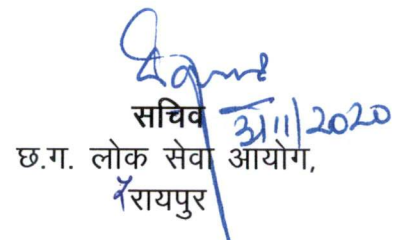 सचिव
11/2020
छ.ग. लोक सेवा आयोग,
रायपुर